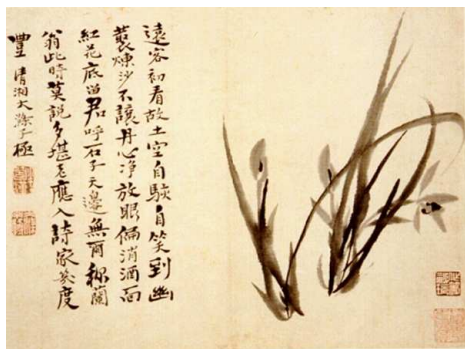 遠客初看故土空自駭自笑到幽
叢煉沙不讓丹心淨放眼偏消酒面
紅花底留君呼石子天邊無爾稱蘭
翁此時莫說多堪老應入詩家幾度
豐 清湘大滌子極